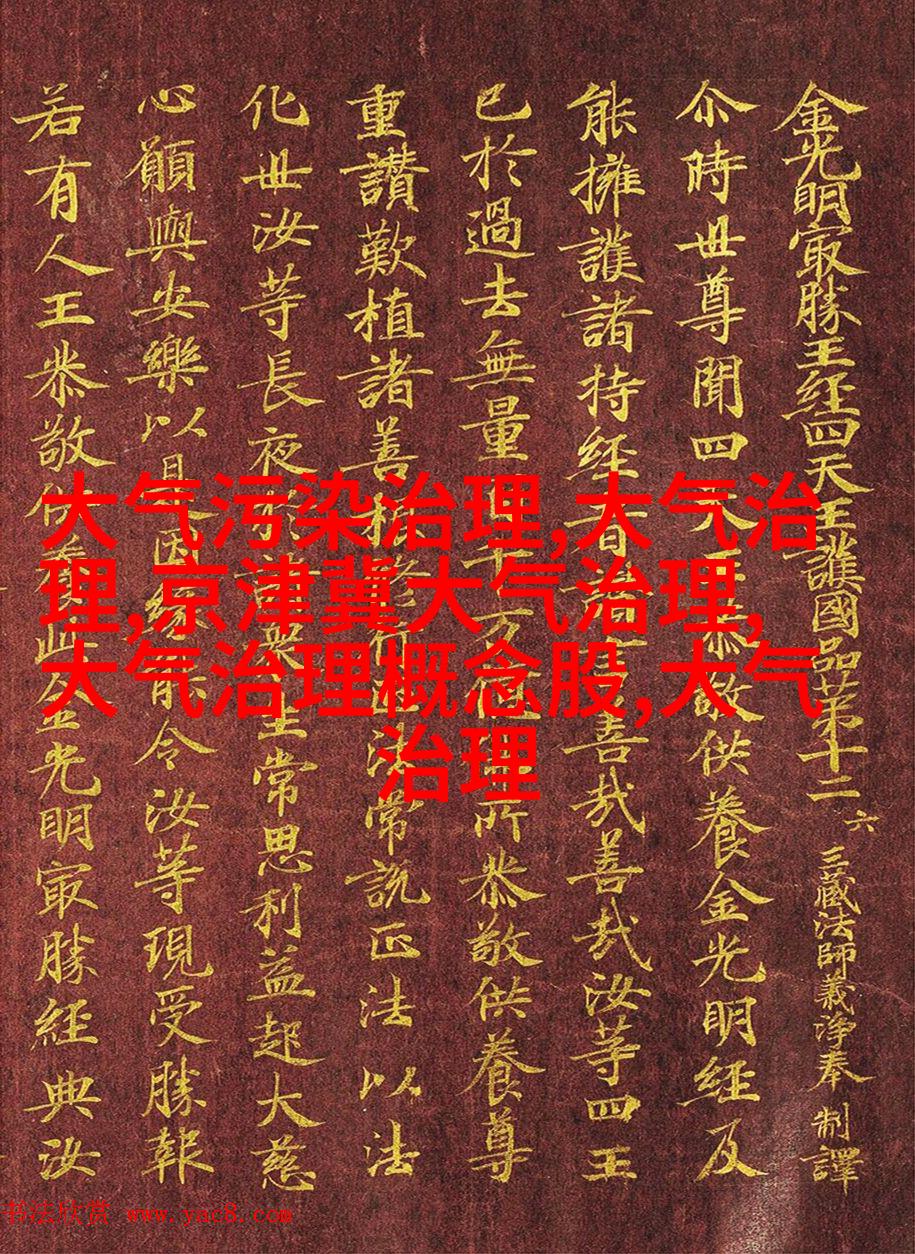 金光明冣勝王經四天王護國品第十二 六 三藏法師義淨奉 制譯
尒時世尊聞四天王恭敬供養金光明經及
能擁護諸持經者善哉善哉汝等四王
已於過去無量千万所恭敬供養尊
重讚歎植諸善法常說正法以法
化世汝等長夜於衆生常思利益起大慈
心願與安樂以是因緣能令汝等現受勝報
若有人王恭敬供養此金光明冣勝經典汝
大气污染治理,大气治
理,京津冀大气治理,
大气治理概念股,大气
治理
书法欣赏 www.yac8.com